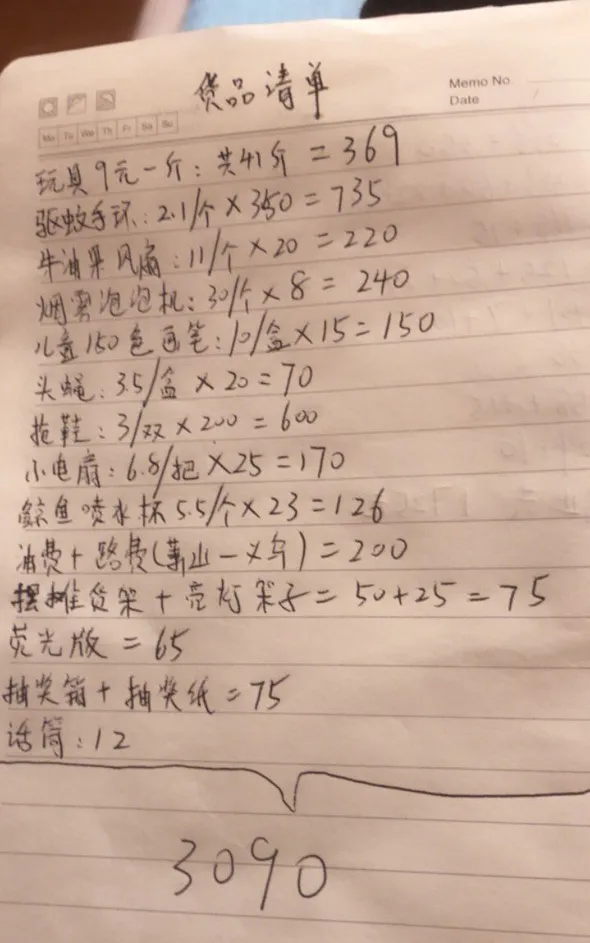 货品清单
Memo No.
Date /
Mo Tu We Th Fr Sa Su
玩具9元一斤：共41斤 = 369
驱蚊手环：2.1/个×350=735
牛油果风扇：11/个×20=220
烟雾泡泡机：30/个×8=240
儿童150色画笔：10/盒×15=150
头绳：3.5/盒×20=70
拖鞋：3/双×200=600
小电扇：6.8/把×25=170
鲸鱼喷水杯5.5/个×23=126
油费+路费(萧山－义乌)=200
摆摊货架+亮灯架子=50+25=75
荧光版=65
抽奖箱+抽奖纸=75
话筒：12
3090